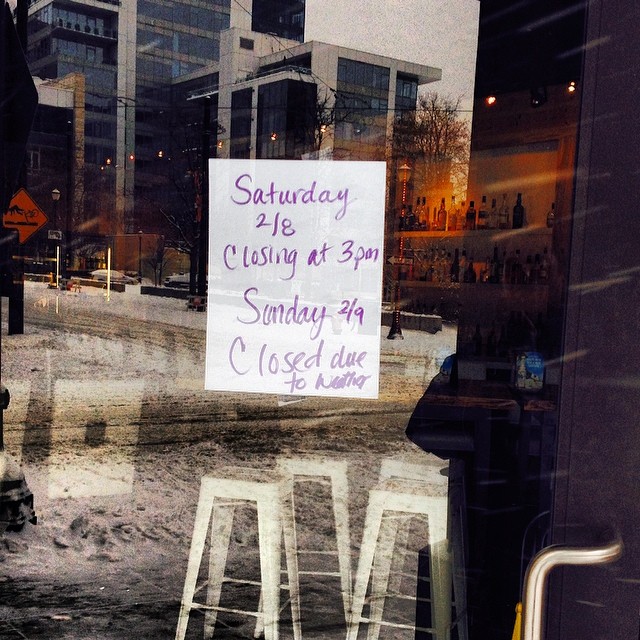 Saturday
2/8
Closing at 3pm
Sunday 2/9
Closed due
to weather